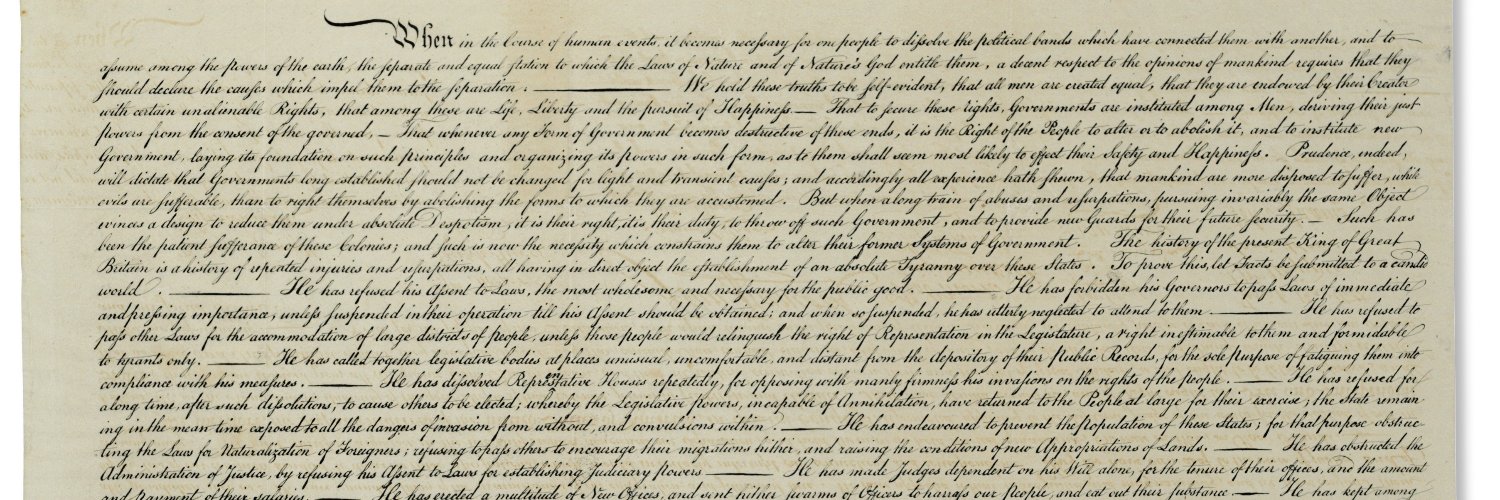 When in the Course of human events, it becomes necessary for one people to dissolve the political bands which have connected them with another, and to
assume among the powers of the earth, the separate and equal station to which the Laws of Nature and of Nature's God entitle them, a decent respect to the opinions of mankind requires that they
should declare the causes which impel them to the separation. — We hold these truths to be self-evident, that all men are created equal, that they are endowed by their Creator
with certain unalienable Rights, that among these are Life, Liberty and the pursuit of Happiness. — That to secure these rights, Governments are instituted among Men, deriving their just
powers from the consent of the governed, — That whenever any Form of Government becomes destructive of these ends, it is the Right of the People to alter or to abolish it, and to institute new
Government, laying its foundation on such principles and organizing its powers in such form, as to them shall seem most likely to effect their Safety and Happiness. Prudence, indeed,
will dictate that Governments long established should not be changed for light and transient causes; and accordingly all experience hath shewn, that mankind are more disposed to suffer, while
evils are sufferable, than to right themselves by abolishing the forms to which they are accustomed. But when a long train of abuses and usurpations, pursuing invariably the same Object
evinces a design to reduce them under absolute Despotism, it is their right, it is their duty, to throw off such Government, and to provide new Guards for their future security. — Such has
been the patient sufferance of these Colonies; and such is now the necessity which constrains them to alter their former Systems of Government. The history of the present King of Great
Britain is a history of repeated injuries and usurpations, all having in direct object the establishment of an absolute Tyranny over these States. To prove this, let Facts be submitted to a candid
world. — He has refused his Assent to Laws, the most wholesome and necessary for the public good. — He has forbidden his Governors to pass Laws of immediate
and pressing importance, unless suspended in their operation till his Assent should be obtained; and when so suspended, he has utterly neglected to attend to them. — He has refused to
pass other Laws for the accommodation of large districts of people, unless those people would relinquish the right of Representation in the Legislature, a right inestimable to them and formidable
to tyrants only. — He has called together legislative bodies at places unusual, uncomfortable, and distant from the depository of their Public Records, for the sole purpose of fatiguing them into
compliance with his measures. — He has dissolved Representative Houses repeatedly, for opposing with manly firmness his invasions on the rights of the people. — He has refused for
a long time, after such dissolutions, to cause others to be elected; whereby the Legislative powers, incapable of Annihilation, have returned to the People at large for their exercise; the State remain-
ing in the mean time exposed to all the dangers of invasion from without, and convulsions within. — He has endeavoured to prevent the population of these States; for that purpose obstruc-
ting the Laws for Naturalization of Foreigners; refusing to pass others to encourage their migrations hither, and raising the conditions of new Appropriations of Lands. — He has obstructed the
Administration of Justice, by refusing his Assent to Laws for establishing Judiciary powers. — He has made Judges dependent on his Will alone, for the tenure of their offices, and the amount
and payment of their salaries. — He has erected a multitude of New Offices, and sent hither swarms of Officers to harrass our People, and eat out their substance. — He has kept among